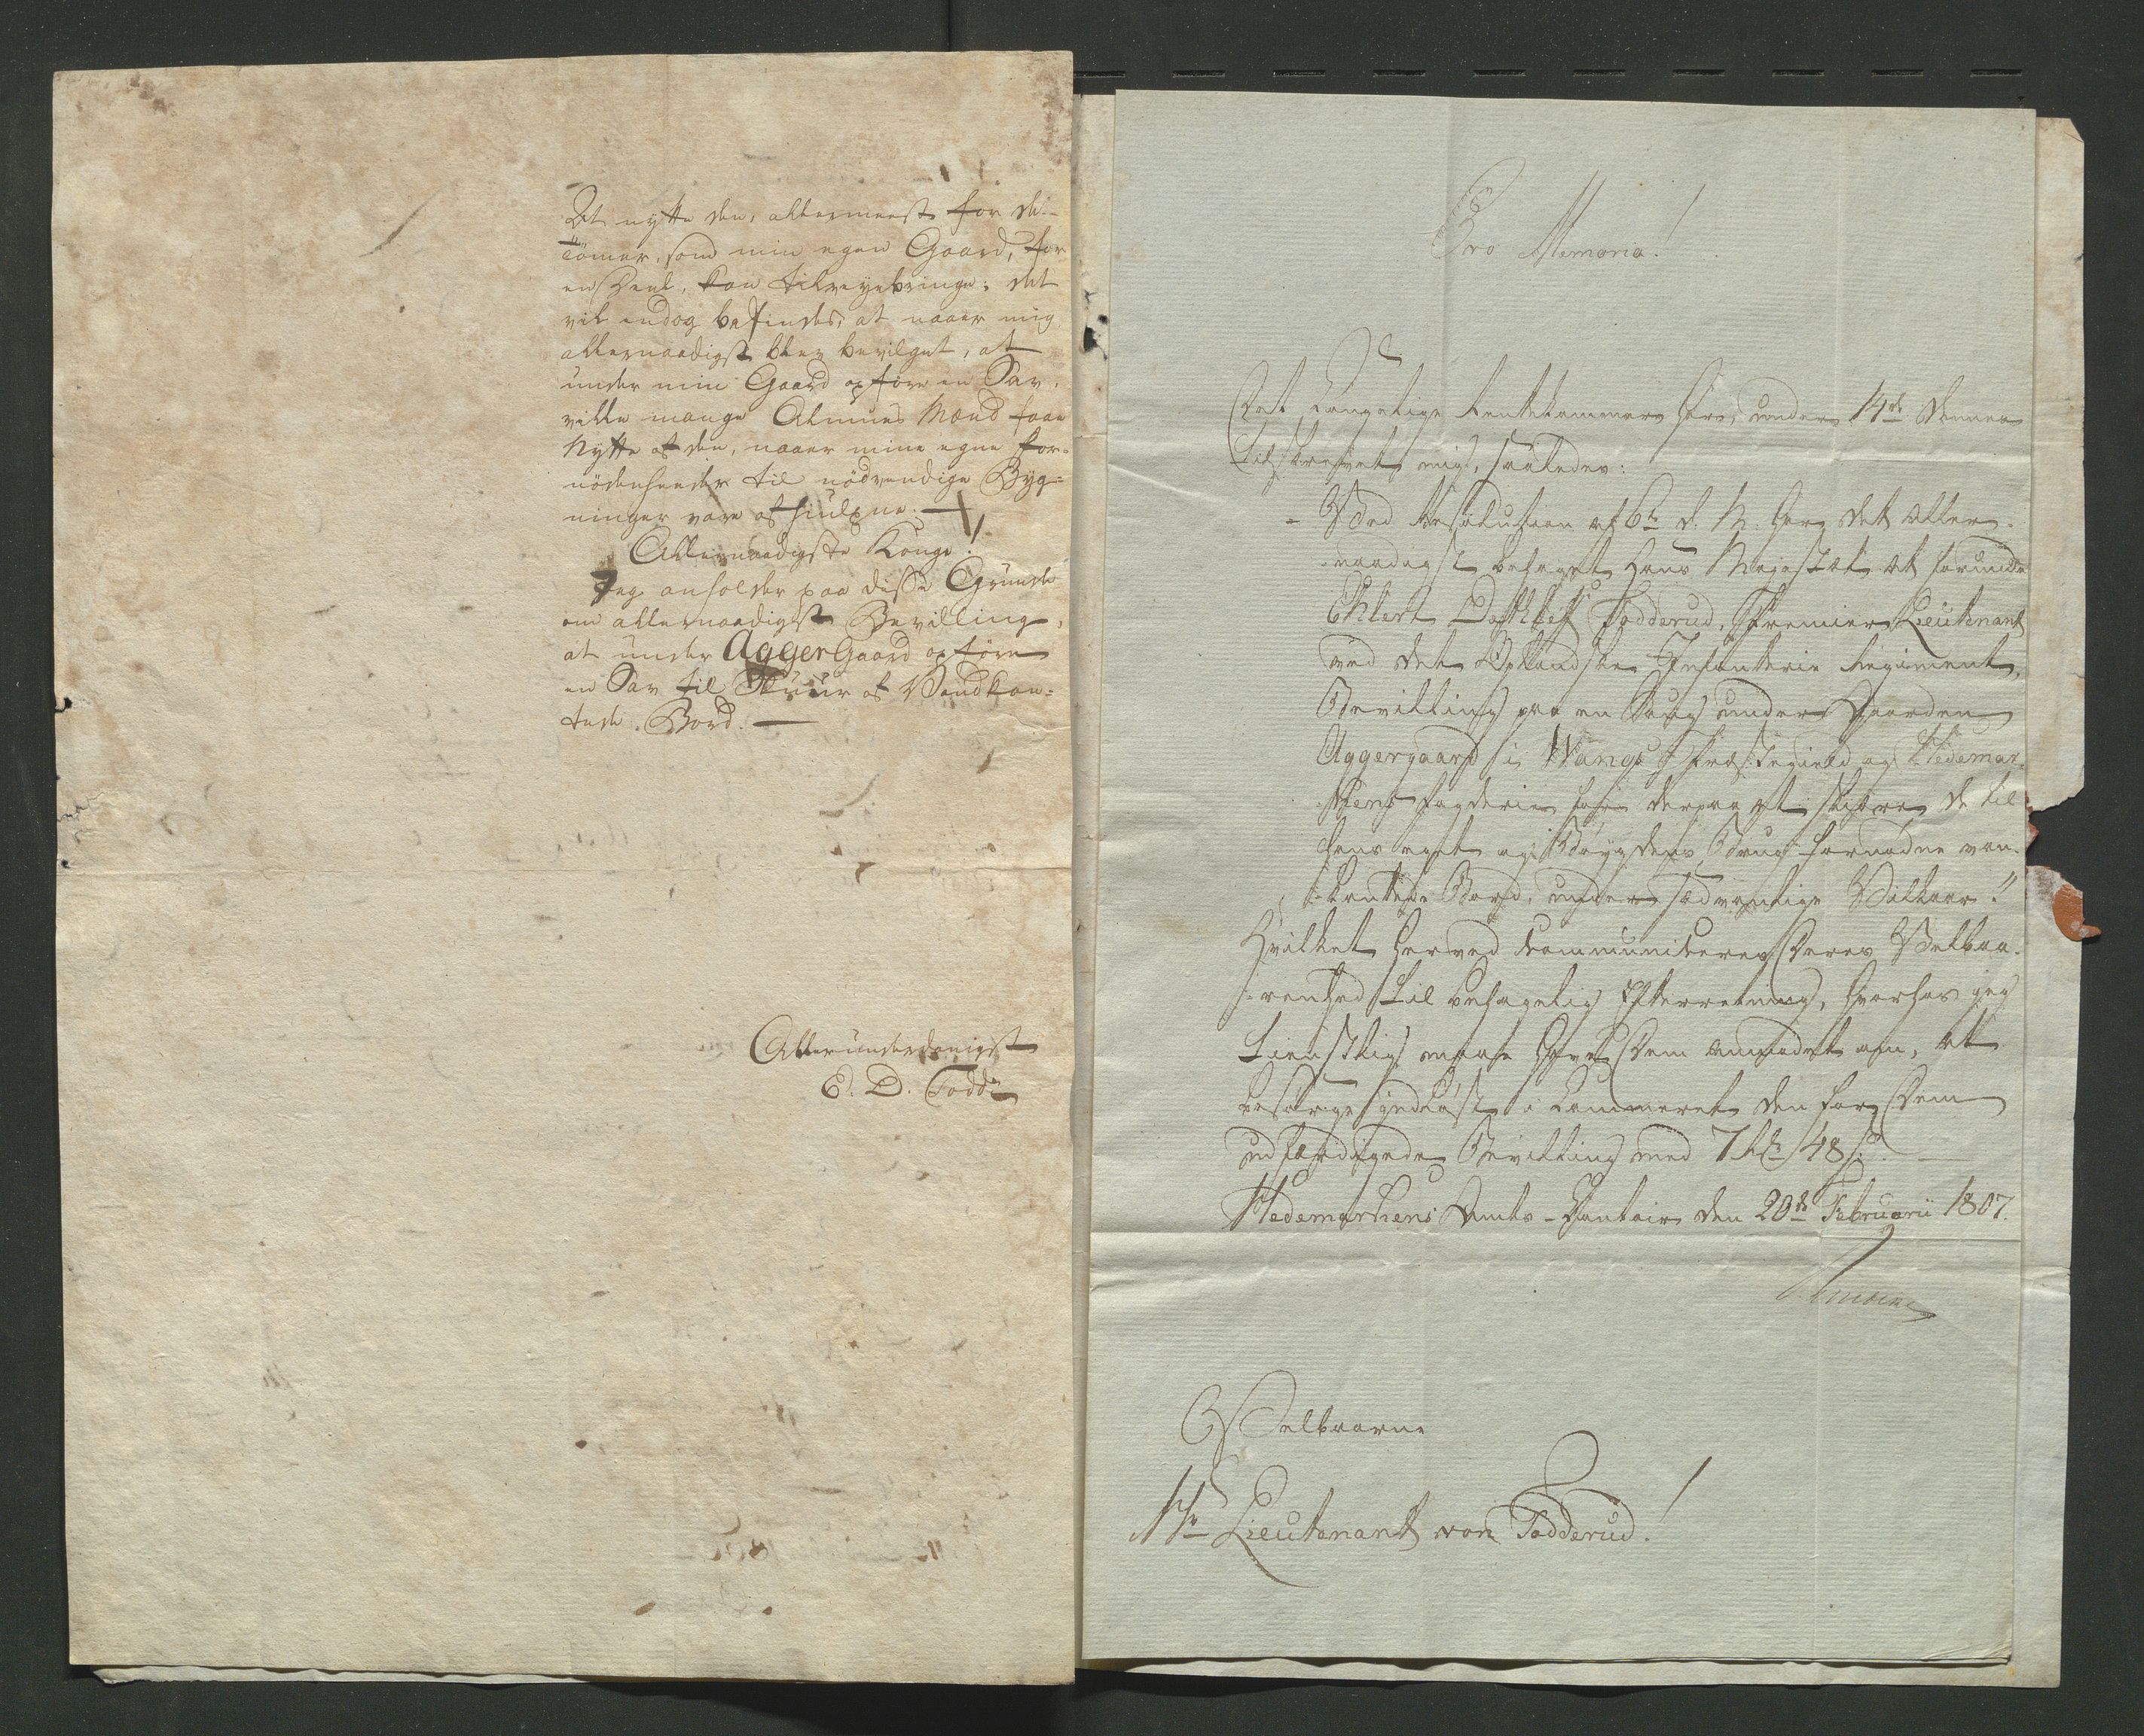 At nytte den, allermeest for de
Tömer, som min egen Gaard, for
en Deel, kan tilveyebringe; det
vil endog befindes, at naaer mig
allernaadigst blev bevilget, at
under min Gaard opföre en Sav,
ville mange Almues Mænd faae
Nytte af den, naaer mine egne for-
nödenheeder til nödvendige Byg-
ninger vare afhiulpne. —
Allernaadigste Konge!
Jeg anholder paa disse Grunde
om allernaadigst Bevilling,
at under Agger Gaard opföre
en Sav til Skuur af Vandkan-
tede Bord. —
Allerunderdanigst
E. D. Todd
Pro Memoria!
Det Kongelige Rentekammer har, under 14de dennes
tilskrevet mig, saaledes:
"Ved Resolution af 6te d. M. har det aller-
naadigst behaget Hans Majestæt at forunde
Ehlert Dethlef Todderud, Premier Lieutenant
ved det Oplandske Infanterie Regiment,
Bevilling paa en Saug under Gaarden
Aggergaard i Wangs Præstegield og Hedemar-
kens Fogderie for derpaa at skjære de til
hans eget og Bøygdens Brug fornødne van-
kantede Bord, under sædvanlige Vilkaar."
Hvilket herved communiceres Deres Velbaa-
renhed til behagelig Efterretning, hvorhos jeg
tienstlig maae have Dem anmodet om, at
besørge indløst i Kammeret den for Dem
udfærdigede Bevilling med 7 Rd 48 s.
Hedemarkens Amts-Contoir den 20de Februarii 1807.
Velbaarne
Hr Lieutenant von Todderud!